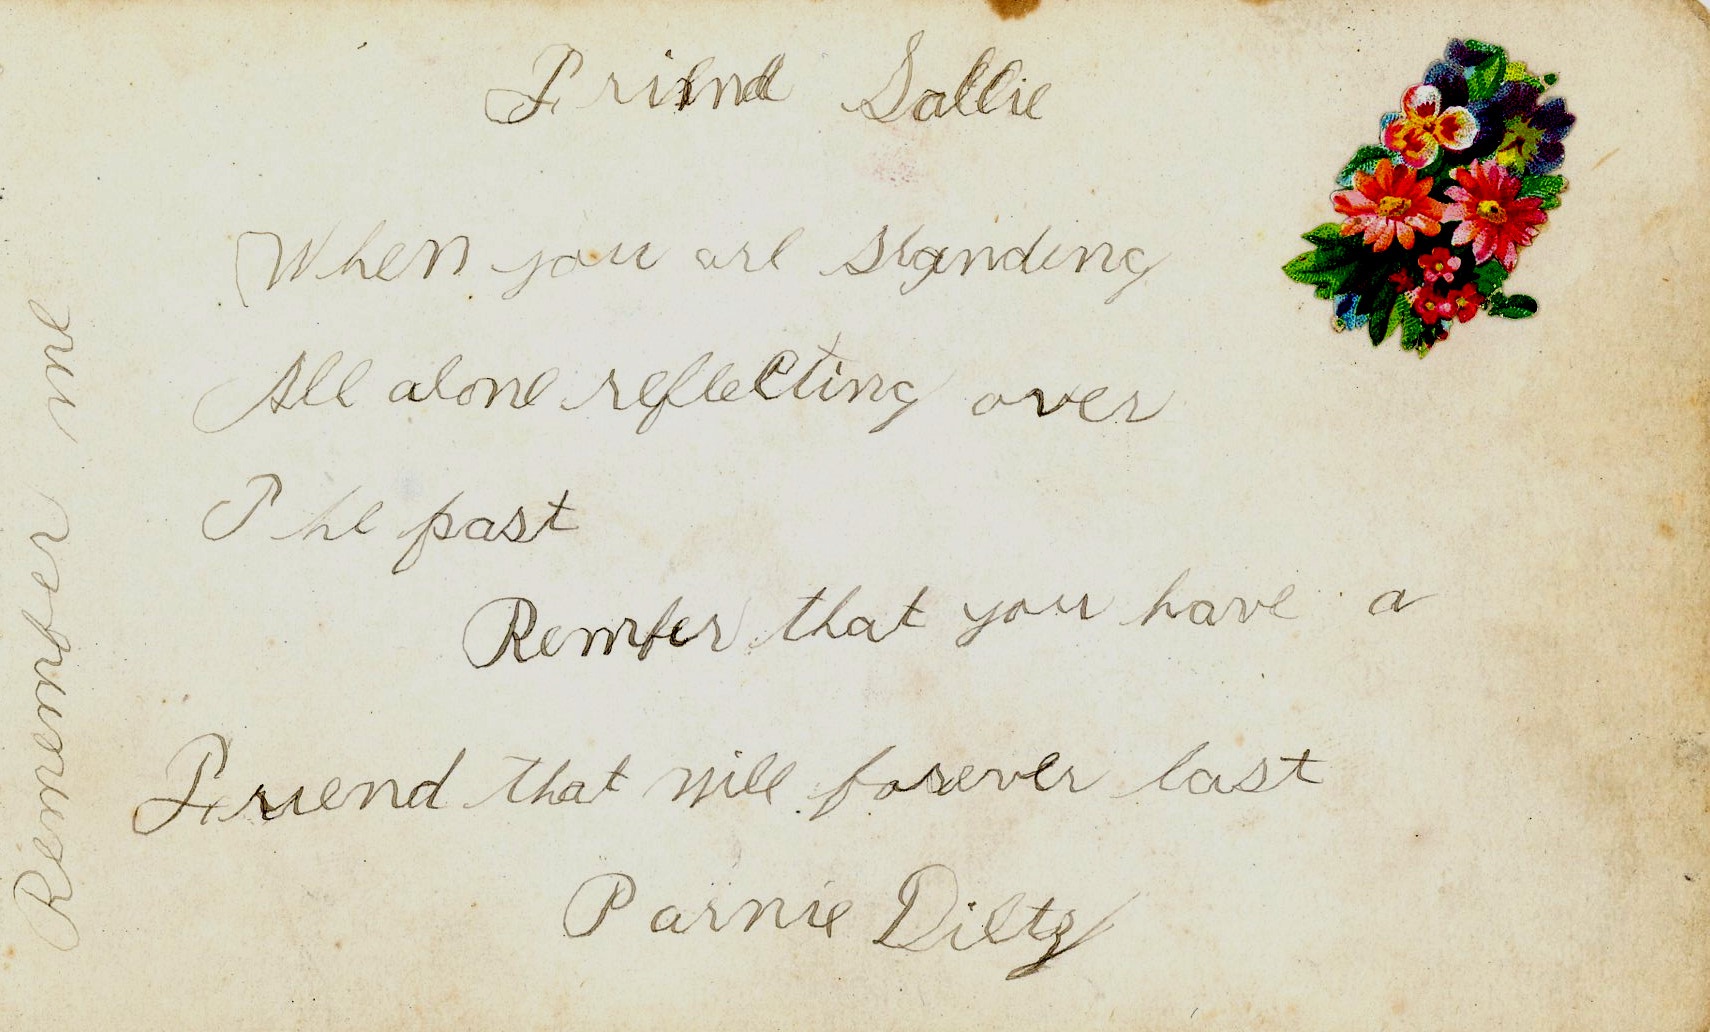 Friend Sallie
When you are standing
All alone reflecting over
The past
Rember that you have a
Friend that will forever last
Parnie Diltz
Rememember me